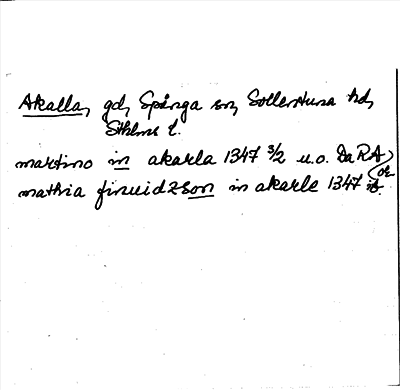 Akalla, gd, Spånga sn, Sollentuna hd,
Sthlms l.
martino in akarla 1347 3/2 u.o. Da RA
mathia finuidzson in akarle 1347 ib. (or